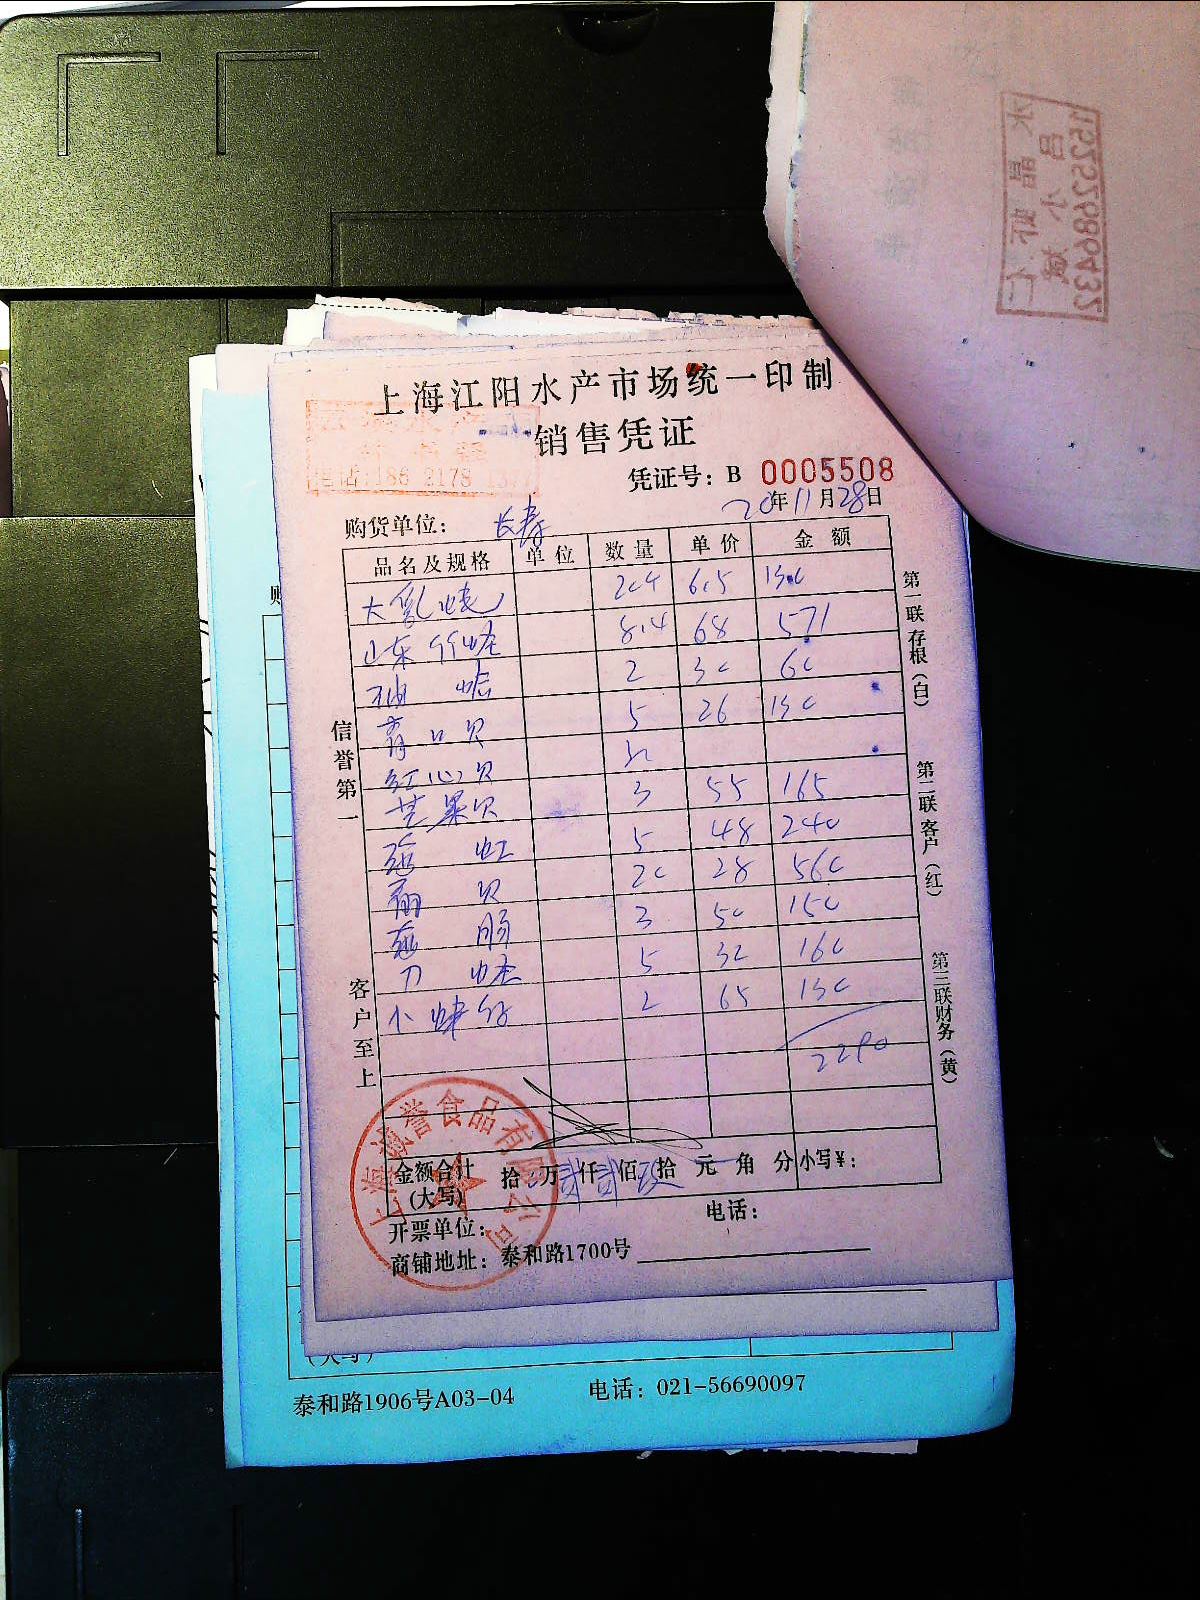 上海江阳水产市场统一印制
销售凭证
电话:186 2178
凭证号：B 0005508
20年11月28日
购货单位： 长寿
品名及规格 单位 数量 单价 金额
大 6.5 130
山东 8.4 68 571
油蛤 2 30 60
青口贝 5 26 130
红心贝
芒果贝 3 55 165
5 48 240
贝 20 28 560
肠 3 50 150
刀蛏 5 32 160
小 2 65 130
2290
信誉第一
客户至上
第一联存根(白)
第二联客户(红)
第三联财务(黄)
金额合计(大写) 拾 万贰仟贰佰玖拾 元 角 分 小写¥：
开票单位： 电话：
商铺地址：泰和路1700号
(大写)
泰和路1906号A03-04 电话：021-56690097
15252686432
吕小斌
水晶虾仁